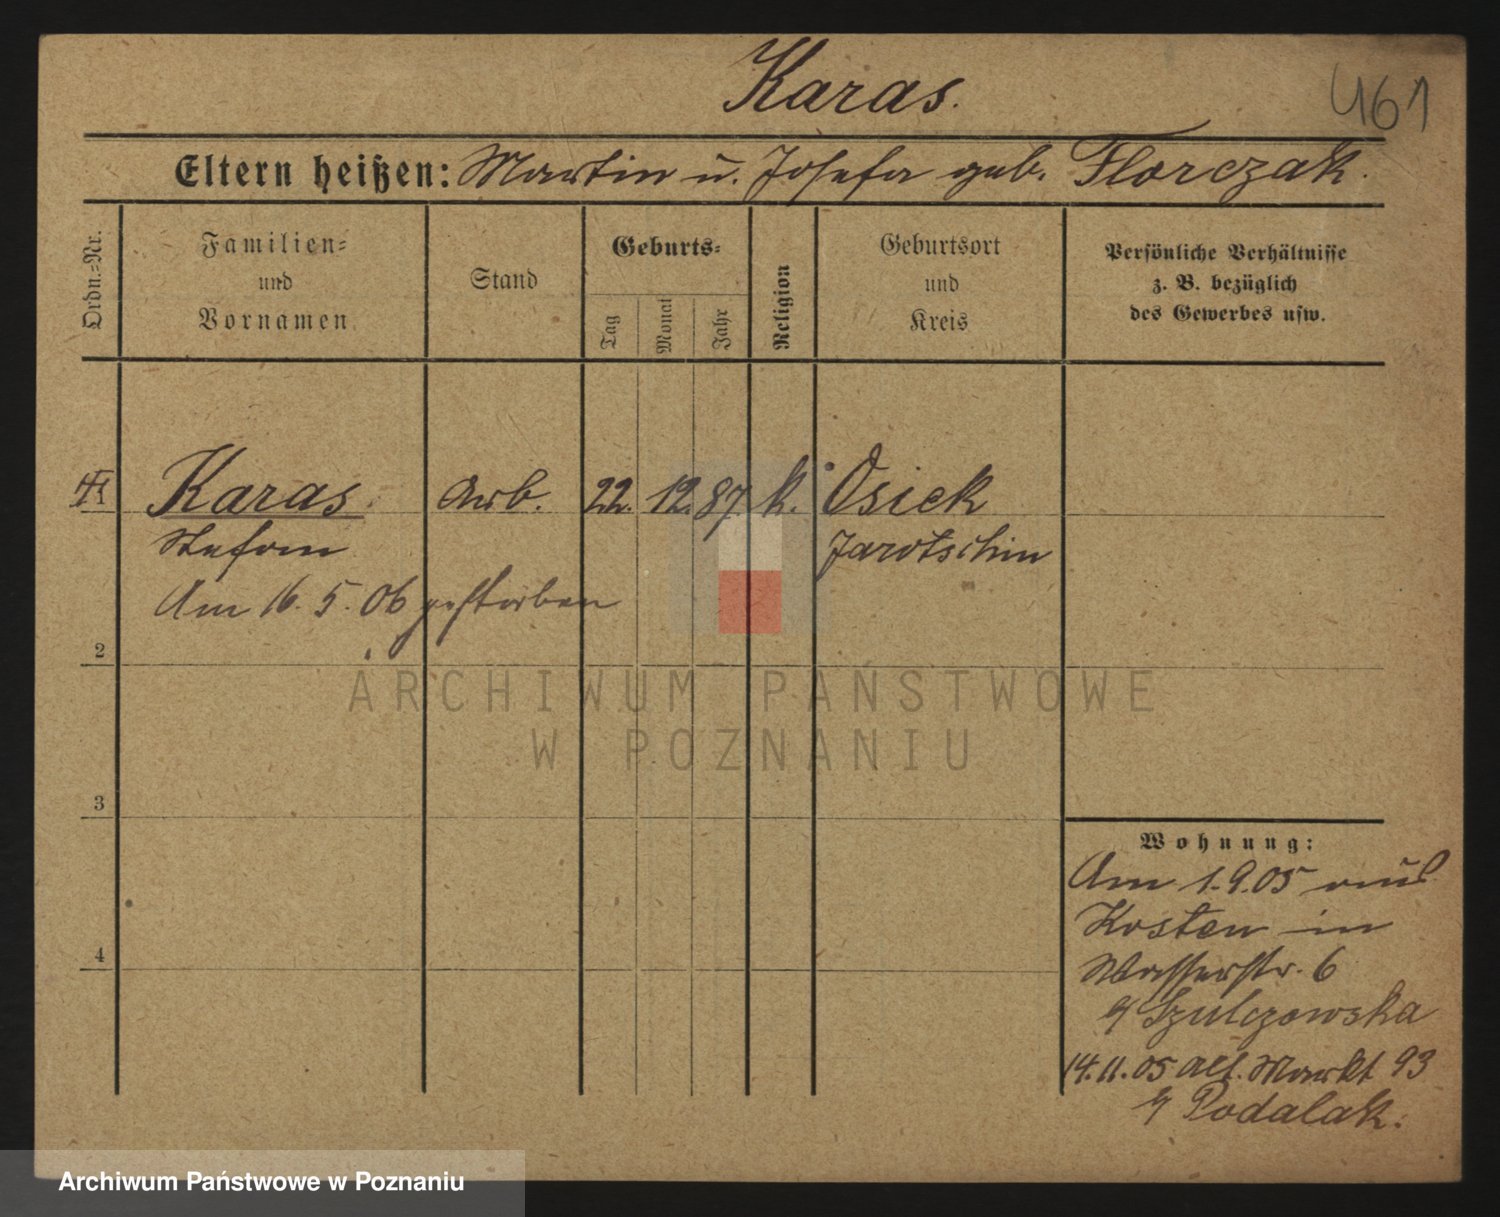 Karas.
461
Eltern heißen: Martin u. Josefa geb. Florczak.
Ordn.=Nr.
Familien=
und
Vornamen
Stand
Geburts=
Tag
Monat
Jahr
Religion
Geburtsort
und
Kreis
Persönliche Verhältnisse
z. B. bezüglich
des Gewerbes usw.
Karas Arb. 22. 12. 87 k. Osiek
Stefan Jarotschin
Am 16. 5. 06 gestorben
2
ARCHIWUM PAŃSTWOWE
W POZNANIU
3
4
Wohnung:
Am 1.9.05 aus
Kosten in
Wasserstr. 6
Szulczowska
14.11.05 Alt. Markt 93
Podalak.
Archiwum Państwowe w Poznaniu